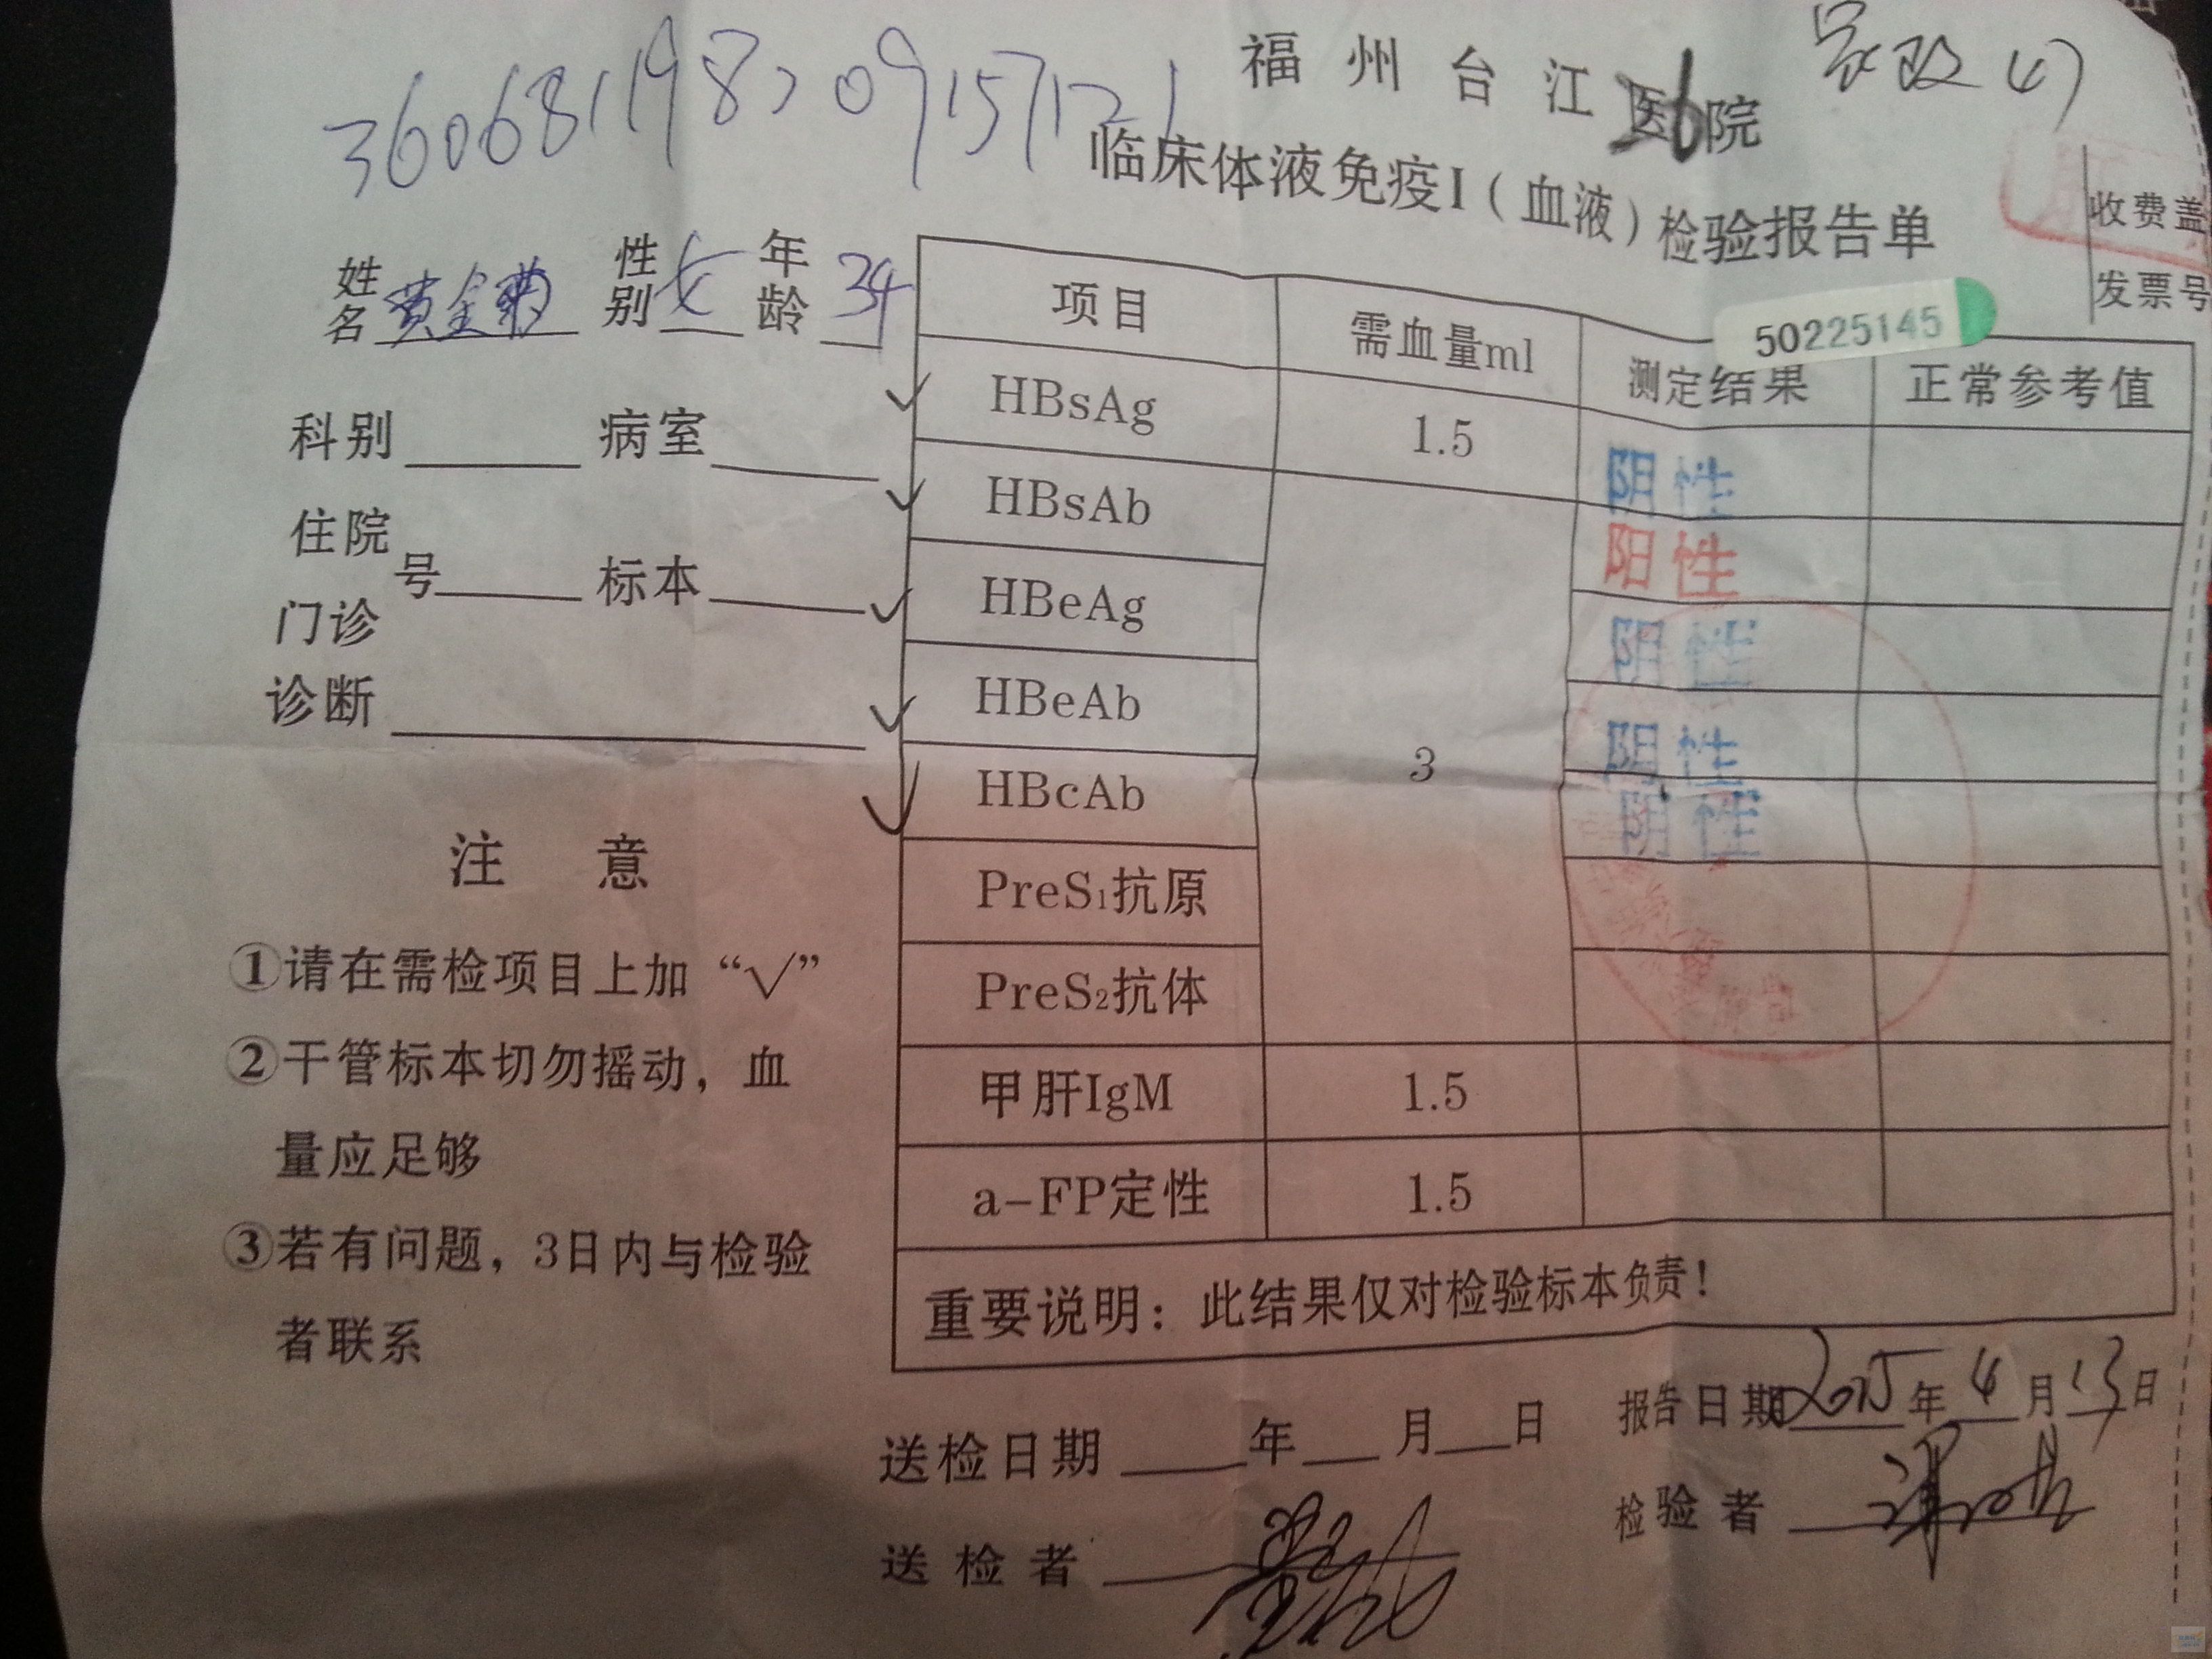 福州台江医院
临床体液免疫I（血液）检验报告单
收费盖
发票号
50225145
姓名 黄金 性别 女 年龄 34
科别 病室
住院
号 标本
门诊
诊断
注 意
①请在需检项目上加“√”
②干管标本切勿摇动，血
量应足够
③若有问题，3日内与检验
者联系
项目 需血量ml 测定结果 正常参考值
√ HBsAg 1.5 阴性
√ HBsAb 阳性
√ HBeAg 阴性
√ HBeAb 3 阴性
√ HBcAb 阴性
PreS₁抗原
PreS₂抗体
甲肝IgM 1.5
a-FP定性 1.5
重要说明：此结果仅对检验标本负责！
送检日期 年 月 日 报告日期2015年4月13日
送检者 检验者